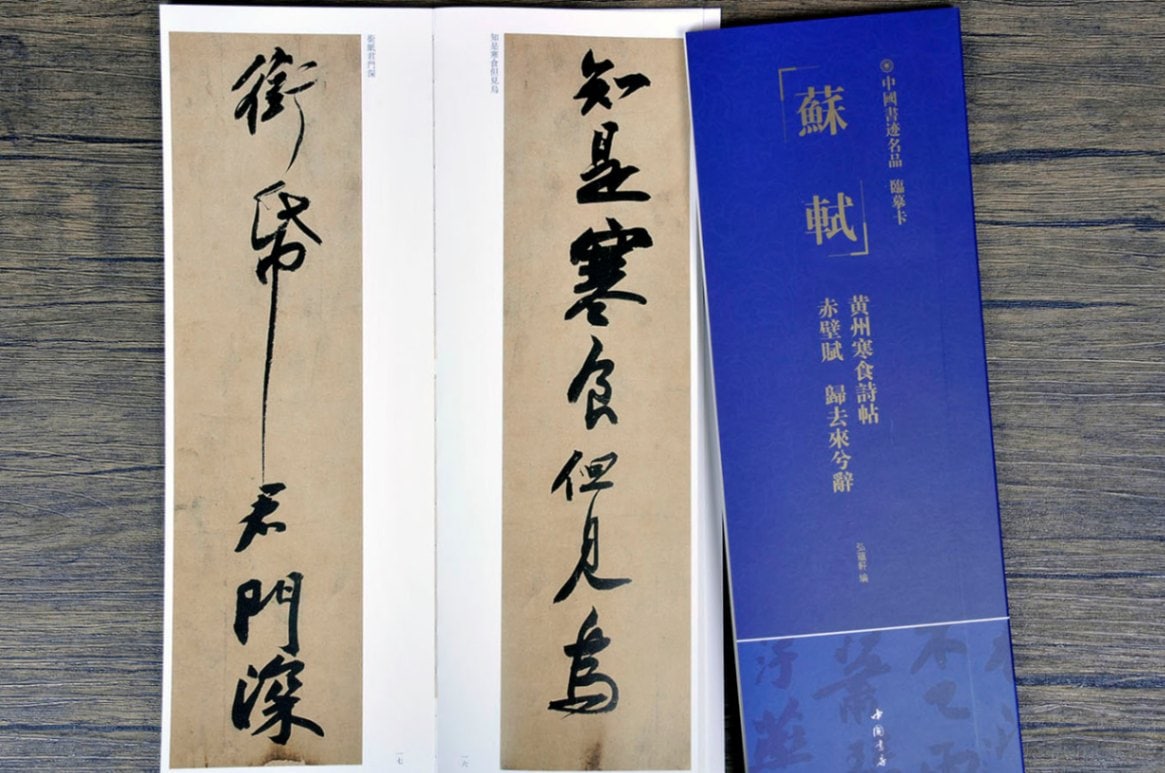 中國書迹名品 臨摹卡
「蘇軾」
黄州寒食詩帖
赤壁賦 歸去來兮辭
弘蘊軒 編
中國書店
知是寒食但見烏
知是寒食但見烏
一六
銜紙君門深
銜帋君門深
一七